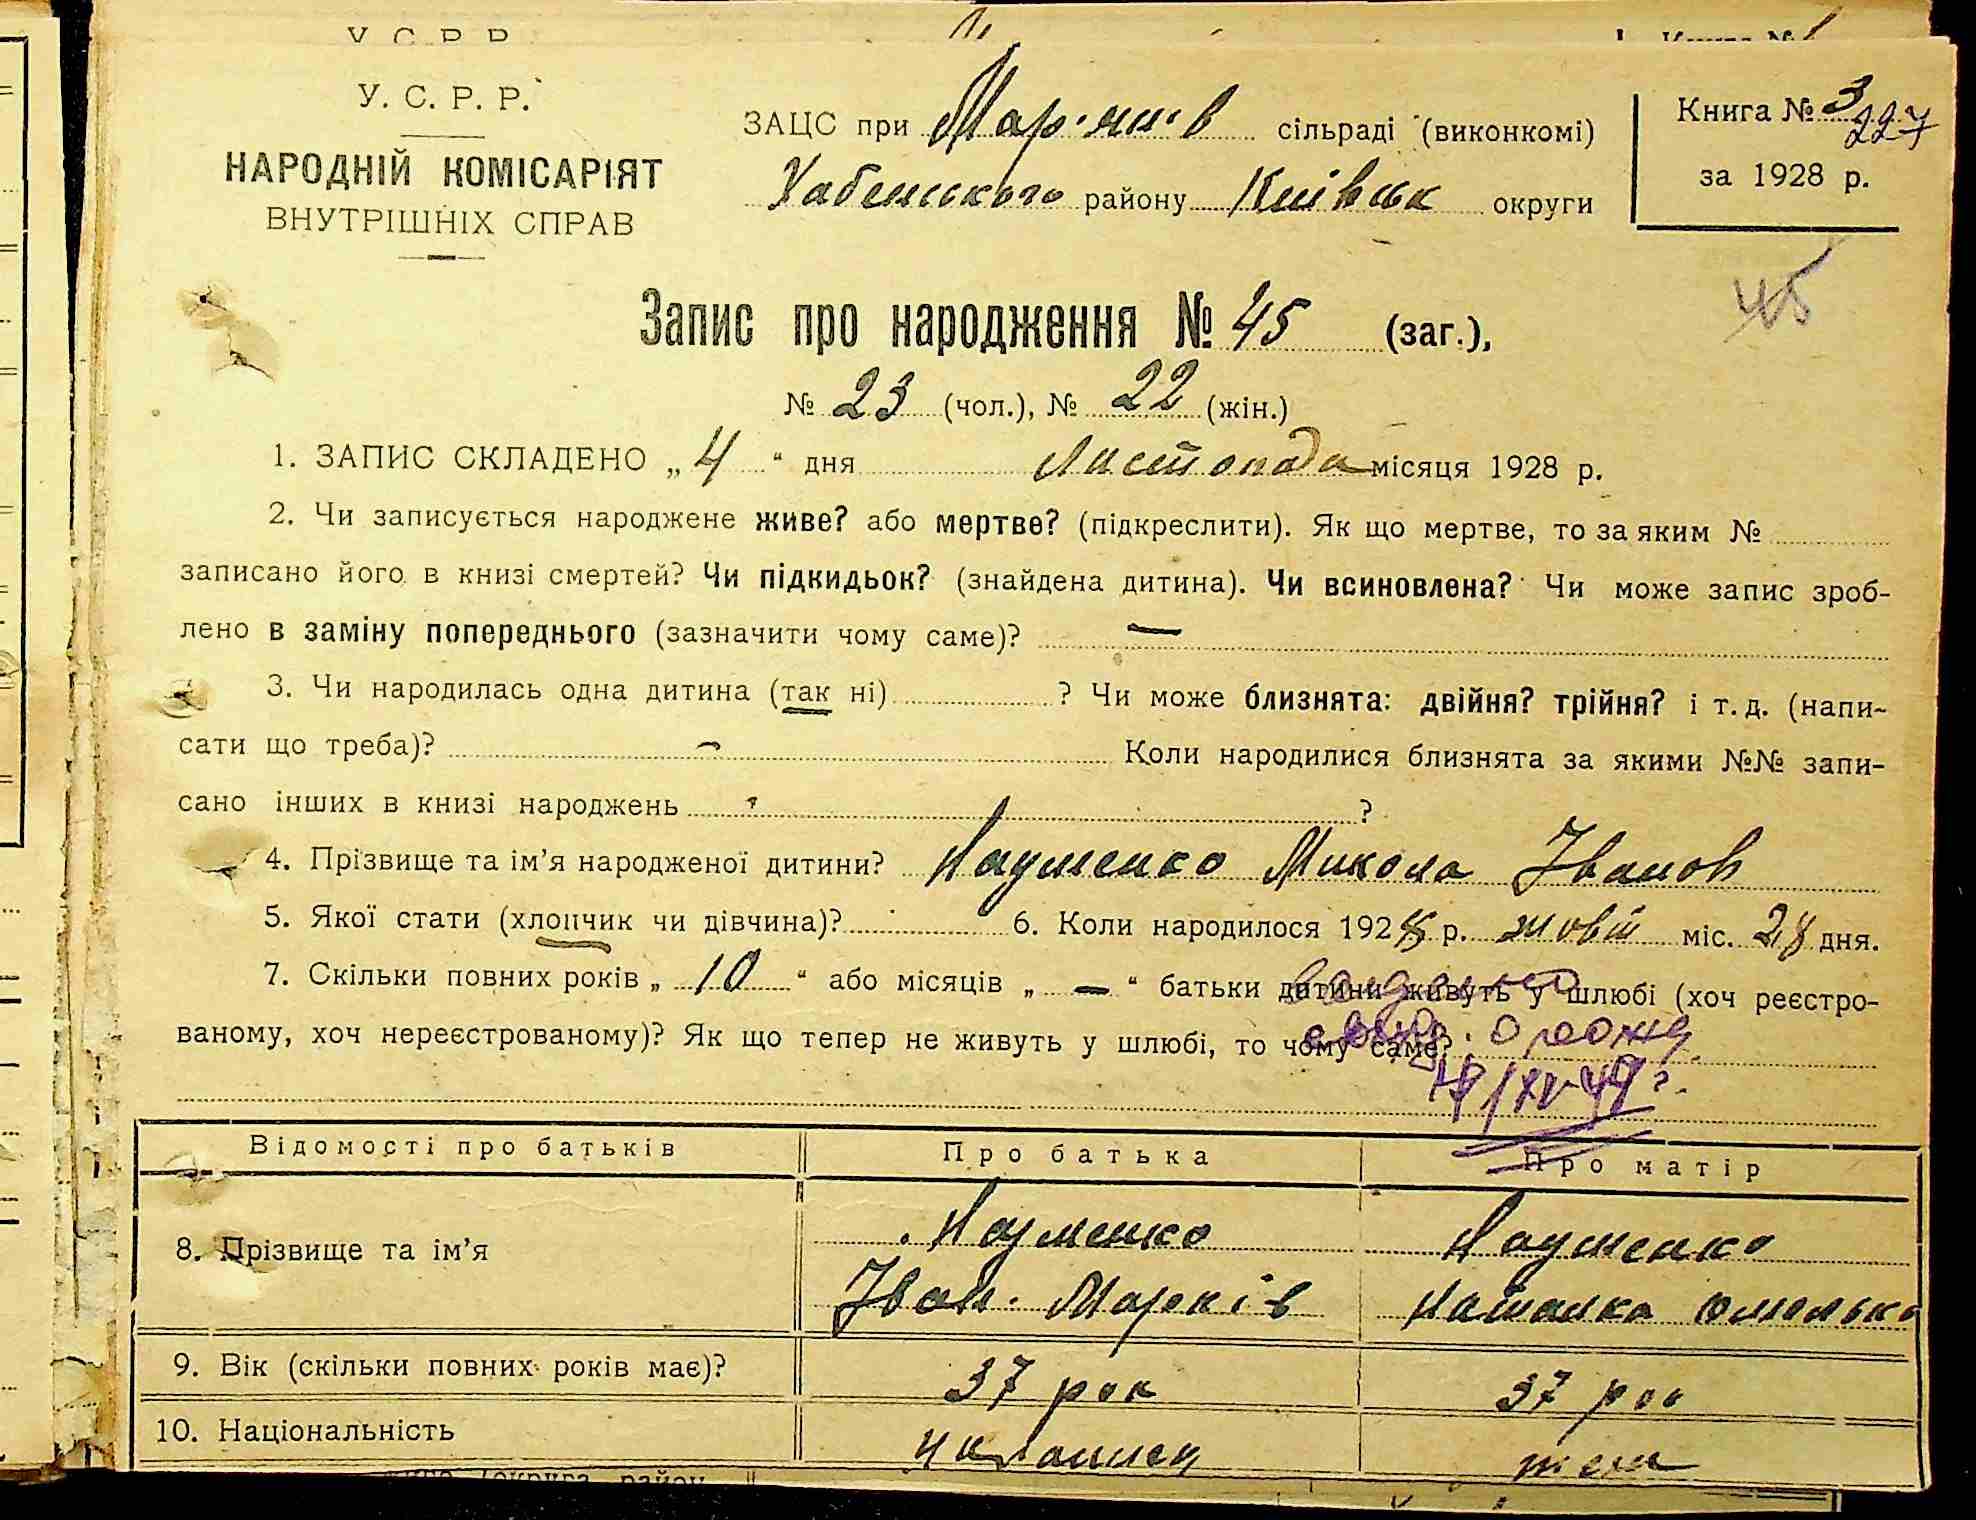 У. С. Р. Р.
НАРОДНІЙ КОМІСАРІЯТ
ВНУТРІШНІХ СПРАВ
ЗАЦС при Мар'янів сільраді (виконкомі)
Хабенського району Київськ округи
Книга № 3
227
за 1928 р.
45
Запис про народження № 45 (заг.),
№ 23 (чол.), № 22 (жін.)
1. ЗАПИС СКЛАДЕНО „ 4 “ дня Листопада місяця 1928 р.
2. Чи записується народжене живе? або мертве? (підкреслити). Як що мертве, то за яким №
записано його в книзі смертей? Чи підкидьок? (знайдена дитина). Чи всиновлена? Чи може запис зроб-
лено в заміну попереднього (зазначити чому саме)? —
3. Чи народилась одна дитина (так ні) ? Чи може близнята: двійня? трійня? і т. д. (напи-
сати що треба)? Коли народилися близнята за якими №№ запи-
сано інших в книзі народжень ?
4. Прізвище та ім’я народженої дитини? Науменко Микола Іванов
5. Якої стати (хлопчик чи дівчина)? 6. Коли народилося 1928 р. жовт міс. 28 дня.
7. Скільки повних років „ 10 “ або місяців „ — “ батьки дитини живуть у шлюбі (хоч реєстро-
ваному, хоч нереєстрованому)? Як що тепер не живуть у шлюбі, то чому саме?
Відомості про батьків Про батька Про матір
8. Прізвище та ім’я Науменко Науменко
Іван Марків Наталка Омелько
9. Вік (скільки повних років має)? 37 рок 37 рок
10. Національність українец теж